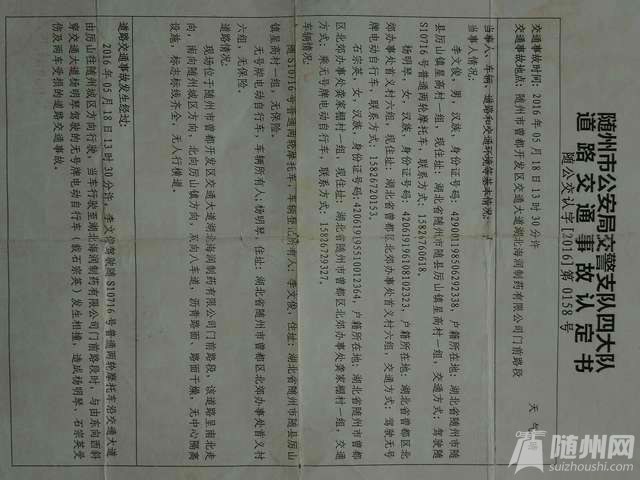 随州市公安局交警支队四大队
道路交通事故认定书
随公交认字[2016]第0158号
交通事故时间：2016年05月18日13时30分许 天气
交通事故地点：随州市曾都开发区交通大道湖北海润制药有限公司门前路段
当事人、车辆、道路和交通环境等基本情况：
当事人情况：
李文俊，男，汉族，身份证号码：429001198506292338，户籍所在地：湖北省随州市随
县厉山镇星高村一组，现住址：湖北省随州市随县厉山镇星高村一组，交通方式：驾驶随
S10716号普通两轮摩托车，联系方式：15826760618。
杨明琴，女，汉族，身份证号码：420619196108102323，户籍所在地：湖北省曾都区北
郊办事处首义村六组，现住址：湖北省曾都区北郊办事处首义村六组，交通方式：驾驶无号
牌电动自行车，联系方式：15826720153。
石宗英，女，汉族，身份证号码：420619195510012364，户籍所在地：湖北省随州市曾都
区北郊办事处龚家棚村一组，现住址：湖北省随州市曾都区北郊办事处龚家棚村一组，交通
方式：乘无号牌电动自行车，联系方式：15826729327。
车辆情况：
随S10716号普通两轮摩托车，车辆登记所有人：李文俊，住址：湖北省随州市随县厉山
镇星高村一组，无保险。
无号牌电动自行车，车辆所有人：杨明琴，住址：湖北省随州市曾都区北郊办事处首义村
六组，无保险。
道路情况：
现场位于随州市曾都开发区交通大道湖北海润制药有限公司门前路段，该道路呈南北走
向，南向随州城区方向，北向厉山镇方向，双向八车道，沥青路面，路面干燥，无中心隔离
设施，标志标线齐全，无人行横道。
道路交通事故发生经过：
2016年05月18日13时30分许，李文俊驾驶随S10716号普通两轮摩托车沿交通大道
由厉山往随州城区方向行驶，当车行驶至湖北海润制药有限公司门前路段时，与由东向西斜
穿交通大道杨明琴驾驶的无号牌电动自行车（载石宗英）发生相撞，造成杨明琴、石宗英受
伤及两车受损的道路交通事故。
随州网
suizhoushi.com